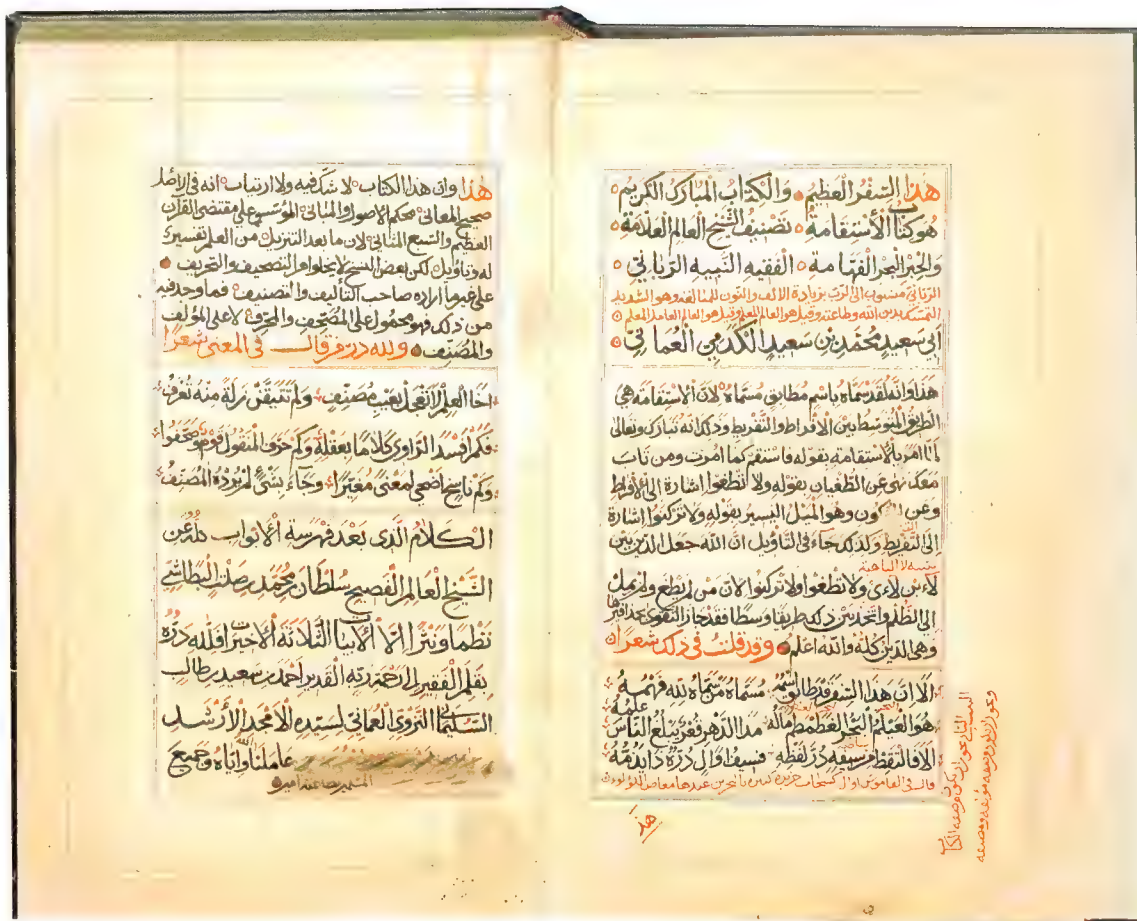 هذا السفر العظيم والكتاب المبارك الكريم
هو كتاب الاستقامة تصنيف الشيخ العالم العلامة
والحبر البحر الفهامة الفقيه النبيه الرباني
الرباني منسوب الى الرب بزيادة الالف والنون للمبالغة وهو الشديد
التمسك بدين الله وطاعته وقيل هو العالم المعلم وقيل هو العالم العامل المعلم
ابي سعيد محمد بن سعيد الكدمي العماني
هذا وانه لقد سماه باسم مطابق مسماه لان الاستقامة هي
الطريق المتوسط بين الافراط والتفريط وذلك انه تبارك وتعالى
لما امر بالاستقامة بقوله فاستقم كما امرت ومن تاب
معك نهى عن الطغيان بقوله ولا تطغوا اشارة الى الافراط
وعن الركون وهو الميل اليسير بقوله ولا تركنوا اشارة
الى التفريط ولذلك جاء في التاويل ان الله جعل الدين بين
لاءين لاءي ولا تطغوا ولا تركنوا لان من لم يطغ ولم يمل
الى الظلم واتخذ بين ذلك طريقا وسطا فقد حاز التقوى
وهي الدين كله والله اعلم وقد قلت في ذلك شعرا
الا ان هذا السفر قد طابق اسمه مسماه من سماه لله فهمه
هو العيلم البحر الغطمطم ماله مدا الدهر قعر يبلغ الناس علمه
الا فالتقط من سيفه در لفظه فسيف اوال دره
قال في القاموس اوال كسحاب جزيرة كبيرة بالبحرين عندها مغاص اللؤلؤ
هذا
هذا وان هذا الكتاب لا شك فيه ولا ارتياب انه في الاصل
صحيح المعاني محكم الاصول والمباني المؤسس على مقتضى القران
العظيم والسبع المثاني لان ما بعد التنزيل من العلم تفسير
له وتاويل لكن بعض النسخ لا يخلوا من التصحيف والتحريف
على غير ما اراده صاحب التأليف والتصنيف فما وجد فيه
من ذلك فهو محمول على المصحف والمحرف لا على المؤلف
والمصنف ولله در من قال في المعنى شعرا
اخا العلم لا تعجل بعيب مصنف ولم تتيقن زلة منه تعرف
فكم افسد الراوي كلاما بعقله وكم حرف المنقول قوم وصحفوا
وكم ناسخ اضحى لمعنى مغيرا وجاء بشيء لم يرده المصنف
الكلام الذي بعد فهرسة الابواب عن
الشيخ العالم الفصيح سلطان بن محمد بن صلت البطاشي
نظما ونثرا الا الابيات الثلاثة الاخيرات فلله دره
بقلم الفقير الى رحمة ربه القدير احمد بن سعيد بن طالب
السليماني النزوي العماني لسيده الامجد الارشد
عاملنا الله واياه وجميع